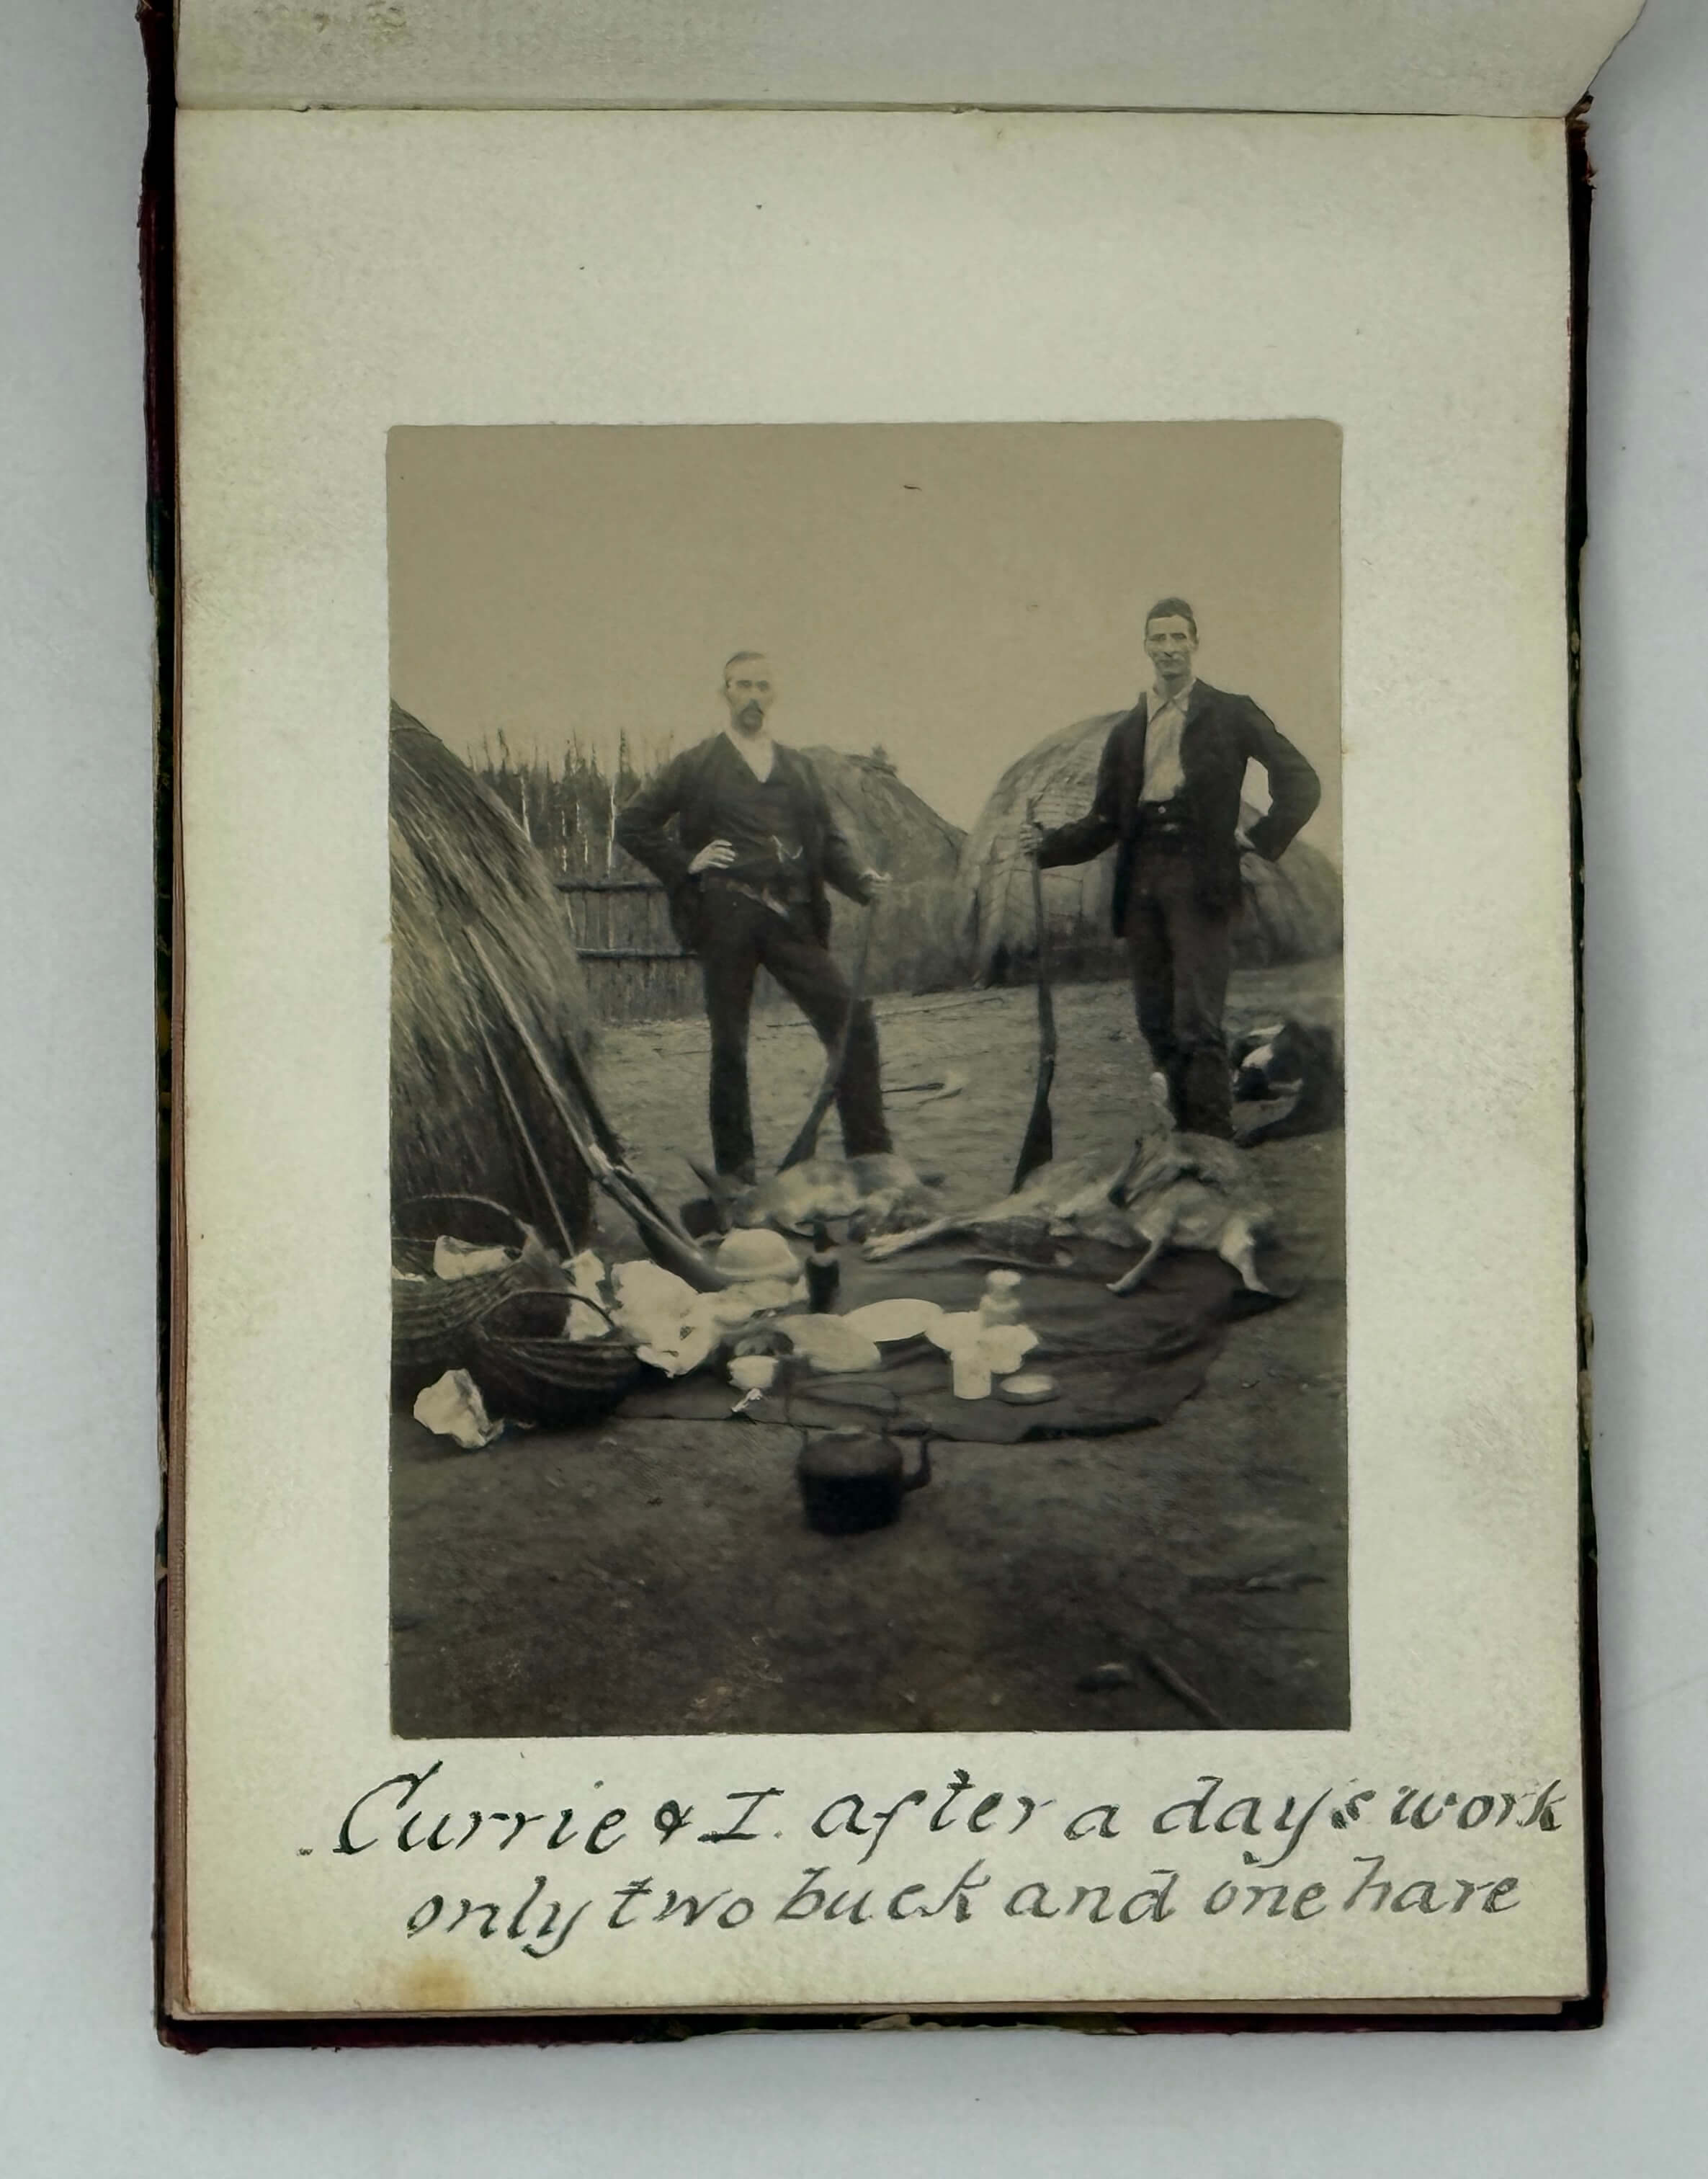 Currie & I. after a day's work
only two buck and one hare